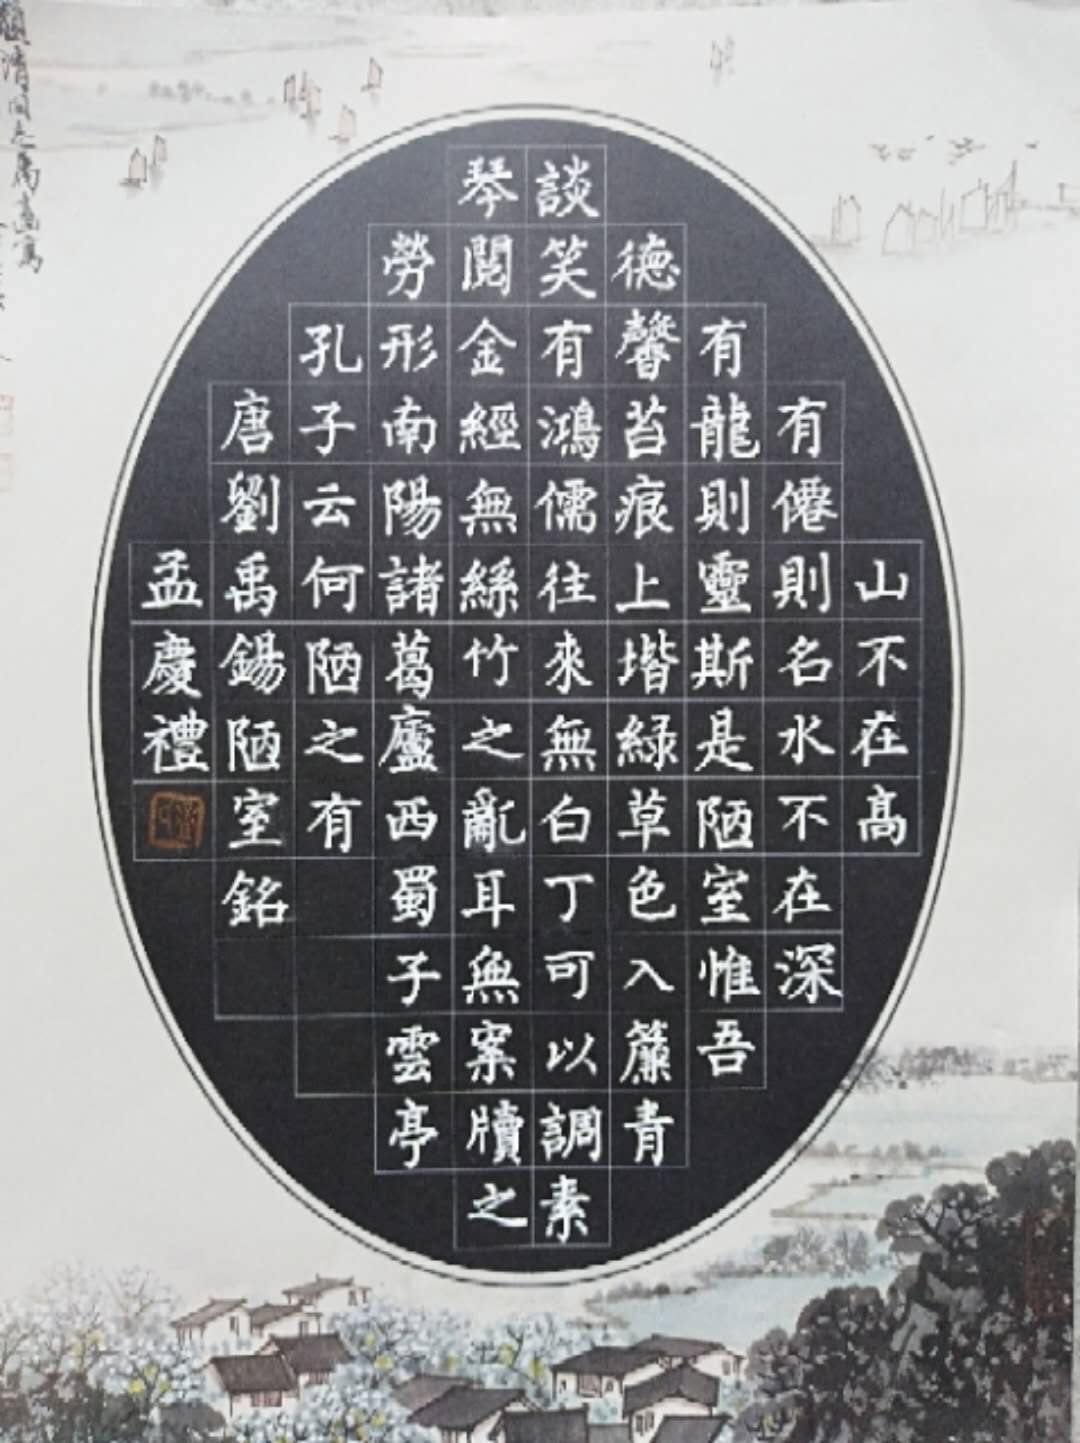 山不在高
有僊則名水不在深
有龍則靈斯是陋室惟吾
德馨苔痕上堦緑草色入簾青
談笑有鴻儒往來無白丁可以調素
琴閲金經無絲竹之亂耳無案牘之
勞形南陽諸葛廬西蜀子雲亭
孔子云何陋之有
唐劉禹錫陋室銘
孟慶禮